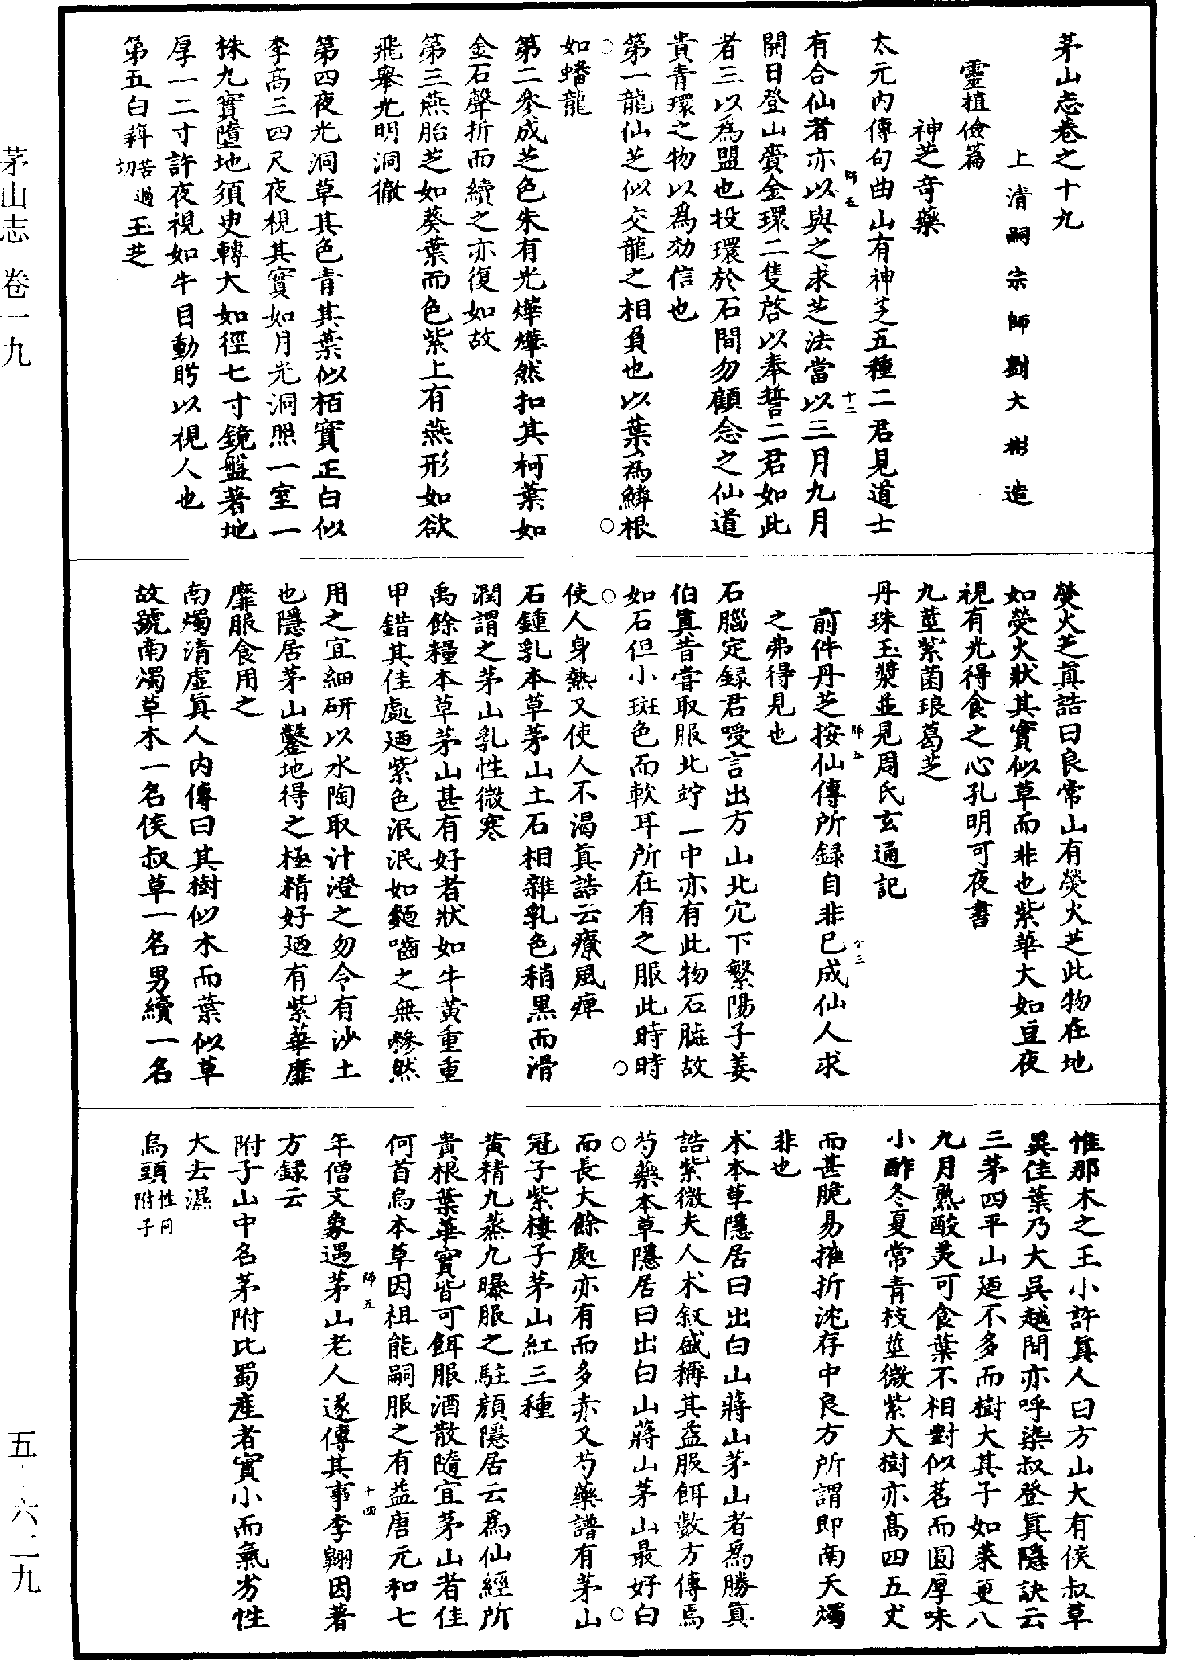 茅山志 卷一九
五·六二九
茅山志卷之十九
上清嗣宗師劉大彬造
靈植儉篇
神芝奇藥
太元內傳句曲山有神芝五種二君見道士
有合仙者亦以與之求芝法當以三月九月
師五
十二
開日登山齎金環二隻啓以奉誓二君如此
者三以爲盟也投環於石間勿顧念之仙道
貴青環之物以爲効信也
第一龍仙芝似交龍之相負也以葉爲鱗根
如蟠龍
第二參成芝色朱有光燁燁然扣其柯葉如
金石聲折而續之亦復如故
第三燕胎芝如葵葉而色紫上有燕形如欲
飛舉光明洞徹
第四夜光洞草其色青其葉似栢實正白似
李高三四尺夜視其實如月光洞照一室一
株九實墮地須臾轉大如徑七寸鏡盤著地
厚一二寸許夜視如牛目動眄以視人也
第五白䔍苦過切玉芝
熒火芝眞誥曰良常山有熒火芝此物在地
如熒火狀其實似草而非也紫華大如豆夜
視有光得食之心孔明可夜書
九莖紫菌琅葛芝
丹珠玉漿並見周氏玄通記
前件丹芝按仙傳所録自非已成仙人求
師五
十三
之弗得見也
石腦定録君受言出方山北穴下繁陽子姜
伯眞昔嘗取服北竚一中亦有此物石腦故
如石但小斑色而軟耳所在有之服此時時
使人身熱又使人不渴眞誥云療風痺
石鍾乳本草茅山土石相雜乳色稍黑而滑
潤謂之茅山乳性微寒
禹餘糧本草茅山甚有好者狀如牛黄重重
甲錯其佳處廼紫色泯泯如麵嚙之無磣然
用之宜細研以水陶取汁澄之勿令有沙土
也隱居茅山鑿地得之極精好廼有紫華靡
靡服食用之
南燭清虛眞人內傳曰其樹似木而葉似草
故號南燭草木一名侯叔草一名男續一名
惟那木之王小許眞人曰方山大有侯叔草
異佳葉乃大吳越間亦呼染叔登眞隱訣云
三茅四平山廼不多而樹大其子如茱萸八
九月熟酸美可食葉不相對似茗而圓厚味
小酢冬夏常青枝莖微紫大樹亦高四五丈
而甚脆易摧折沈存中良方所謂即南天燭
非也
朮本草隱居曰出白山蔣山茅山者爲勝眞
誥紫微夫人朮叙盛稱其益服餌數方傳焉
芍藥本草隱居曰出白山蔣山茅山最好白
而長大餘處亦有而多赤又芍藥譜有茅山
冠子紫樓子茅山紅三種
黄精九蒸九曝服之駐顏隱居云爲仙經所
貴根葉華實皆可餌服酒散隨宜茅山者佳
何首烏本草因祖能嗣服之有益唐元和七
年僧文象遇茅山老人遂傳其事李翶因著
師五
十四
方録云
附子山中名茅附比蜀產者實小而氣劣性
大去濕
烏頭性同附子